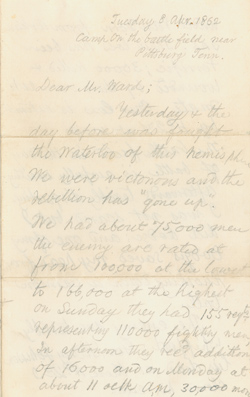 Tuesday 8 Apr. 1862
Camp on the battle field near
Pittsburg Tenn.
Dear Mr. Wards;
Yesterday & the
day before was fought
the Waterloo of this hemisp.
We were victorious and the
rebellion has "gone up".
We had about 75,000 men
the enemy are rated at
from 100000 at the lowest
to 166,000 at the highest
on Sunday they had 155 regts
representing 110000 fighting men,
In afternoon they recd addition
of 16000 and on Monday at
about 11 oclk A,M, 30,000 mo